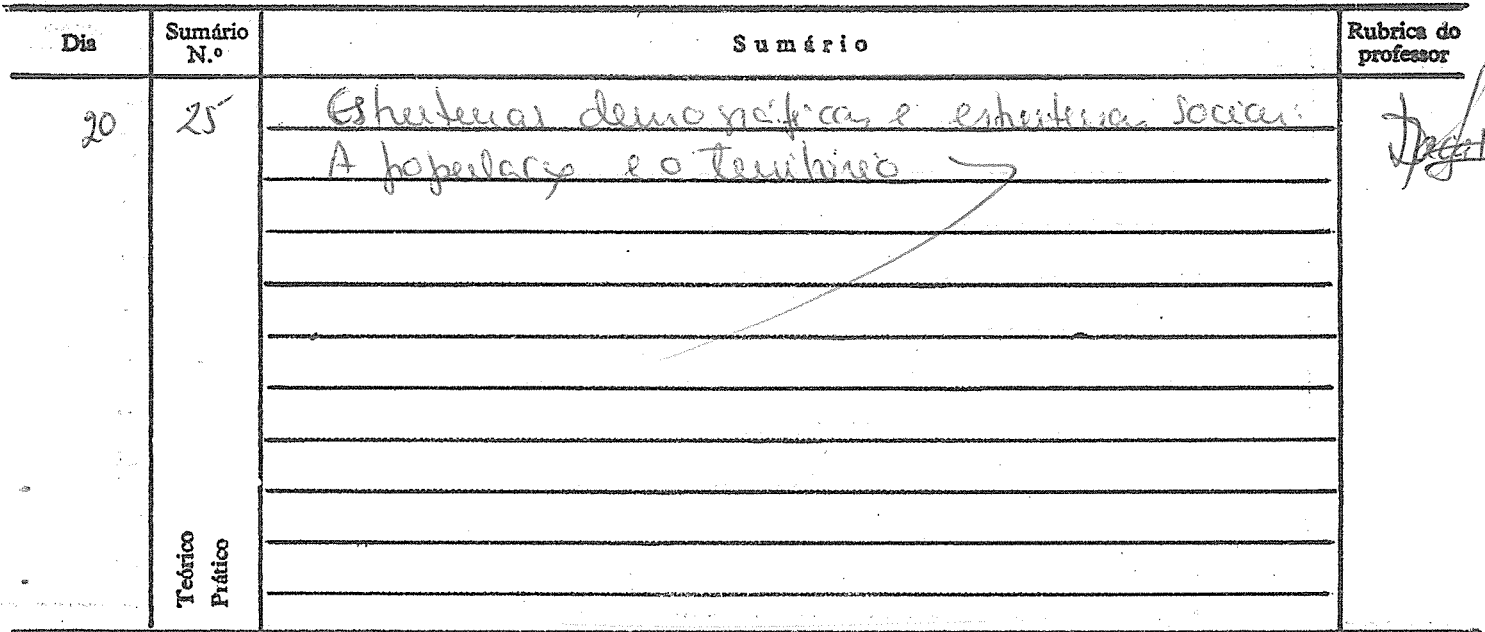 Dia
Sumário N.º
Sumário
Rubrica do professor
20
25
Estruturas demográficas e estruturas sociais:
A população e o território
Teórico
Prático